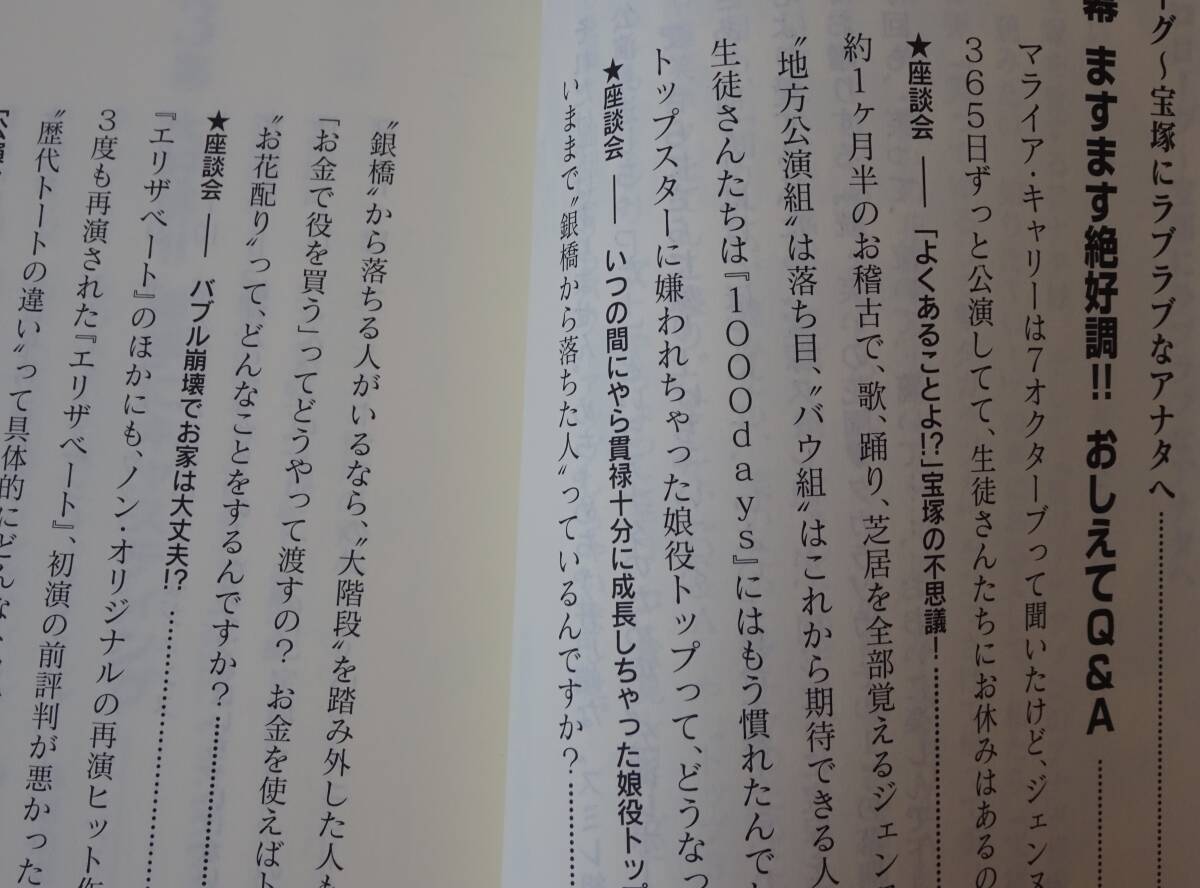 ーグ～宝塚にラブラブなアナタへ
幕 ますます絶好調!! おしえてQ&A
マライア・キャリーは7オクターブって聞いたけど、ジェンヌ
365日ずっと公演してて、生徒さんたちにお休みはあるの
★座談会 ――「よくあることよ!?」宝塚の不思議!
約1ヶ月半のお稽古で、歌、踊り、芝居を全部覚えるジェン
〝地方公演組〟は落ち目、〝バウ組〟はこれから期待できる人
生徒さんたちは『1000days』にはもう慣れたんで
トップスターに嫌われちゃった娘役トップって、どうなっ
★座談会 ―― いつの間にやら貫禄十分に成長しちゃった娘役トップ
いままで〝銀橋から落ちた人〟っているんですか?
〝銀橋〟から落ちる人がいるなら、〝大階段〟を踏み外した人も
「お金で役を買う」ってどうやって渡すの? お金を使えばト
〝お花配り〟って、どんなことをするんですか?
★座談会 ―― バブル崩壊でお家は大丈夫!?
『エリザベート』のほかにも、ノン・オリジナルの再演ヒット作
3度も再演された『エリザベート』、初演の前評判が悪かった
〝歴代トートの違い〟って具体的にどんな